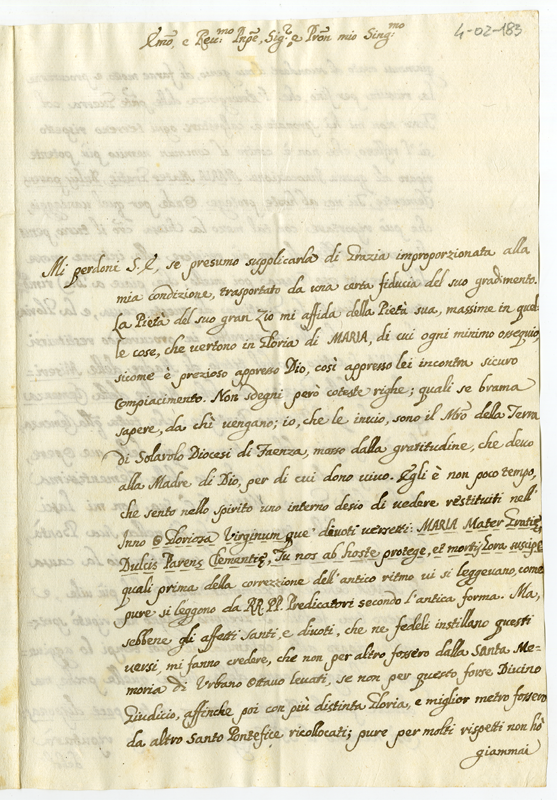 4-02-183
Emo, e Rev.mo Pnpe, Sig.r e Pron mio Sing.mo
Mi perdoni S. E, se presumo supplicarla di Grazia improporzionata alla
mia condizione, trasportato da una certa fiducia del suo gradimento.
La Pietà del suo gran Zio mi affida della Pietà sua, massime in quel-
le cose, che vertono in Gloria di MARIA, di cui ogni minimo ossequio,
sicome è prezioso appresso Dio, così appresso lei incontra sicuro
Compiacimento. Non sdegni però coteste righe; quali se brama
sapere, da chi vengano; io, che le invio, sono il Mro della Terra
di Solarolo Diocesi di Faenza, mosso dalla gratitudine, che devo
alla Madre di Dio, per di cui dono vivo. Egli è non poco tempo,
che sento nello spirito uno interno desio di vedere restituiti nell'
Inno O Gloriosa Virginum que' divoti versetti: MARIA Mater Gratię,
Dulcis Parens Clementię, Tu nos ab hoste protege, et mortis hora suscipe
quali prima della correzzione dell'antico ritmo vi si leggevano, come
pure si leggono da RR. PP. Predicatori secondo l'antica forma. Ma,
sebbene gli affetti santi, e divoti, che ne fedeli instillano questi
versi, mi fanno credere, che non per altro fossero dalla Santa Me-
moria di Urbano Ottavo levati, se non per questo forse Divino
Giudicio, affinche poi con più distinta Gloria, e miglior metro fossero
da altro Santo Pontefice ricollocati; pure per molti rispetti non hò
giammai